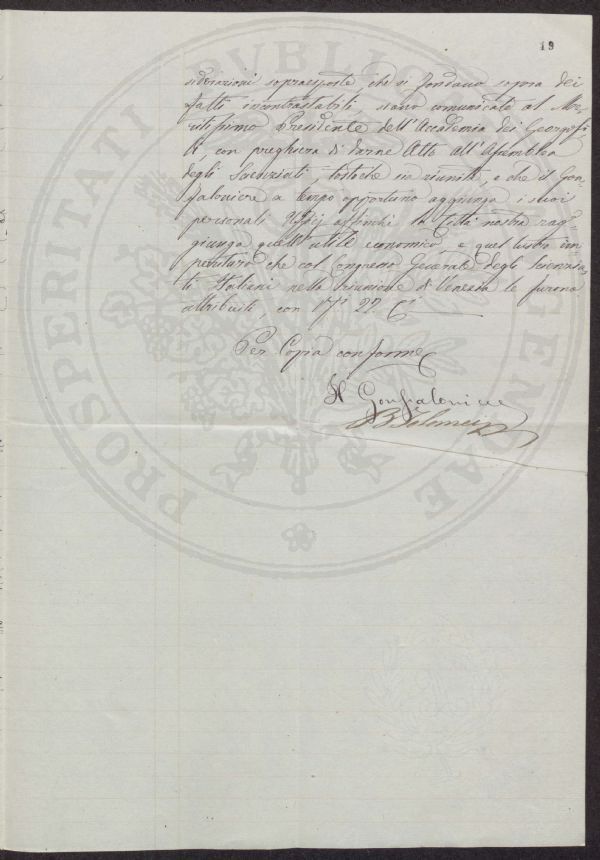 19
siderazioni sopraesposte, che si fondano sopra dei
fatti incontrastabili, siano comunicate al Me-
ritissimo Presidente dell'Accademia dei Georgofi-
li, con preghiera di darne Atto all'Assemblea
degli Scienziati, tostoche sia riunita, e che il Gon-
faloniere a tempo opportuno aggiunga i suoi
personali Uffizj affinchè la Città nostra rag-
giunga quell'utile economico, e quel lustro im-
perituro che col Congresso Generale degli Scienzia-
ti Italiani nella riunione di Venezia le furono
attribuiti, con 
Per Copia conforme
Il Gonfaloniere
B Tolomei
PROSPERITATI PUBLICAE AUGENDAE